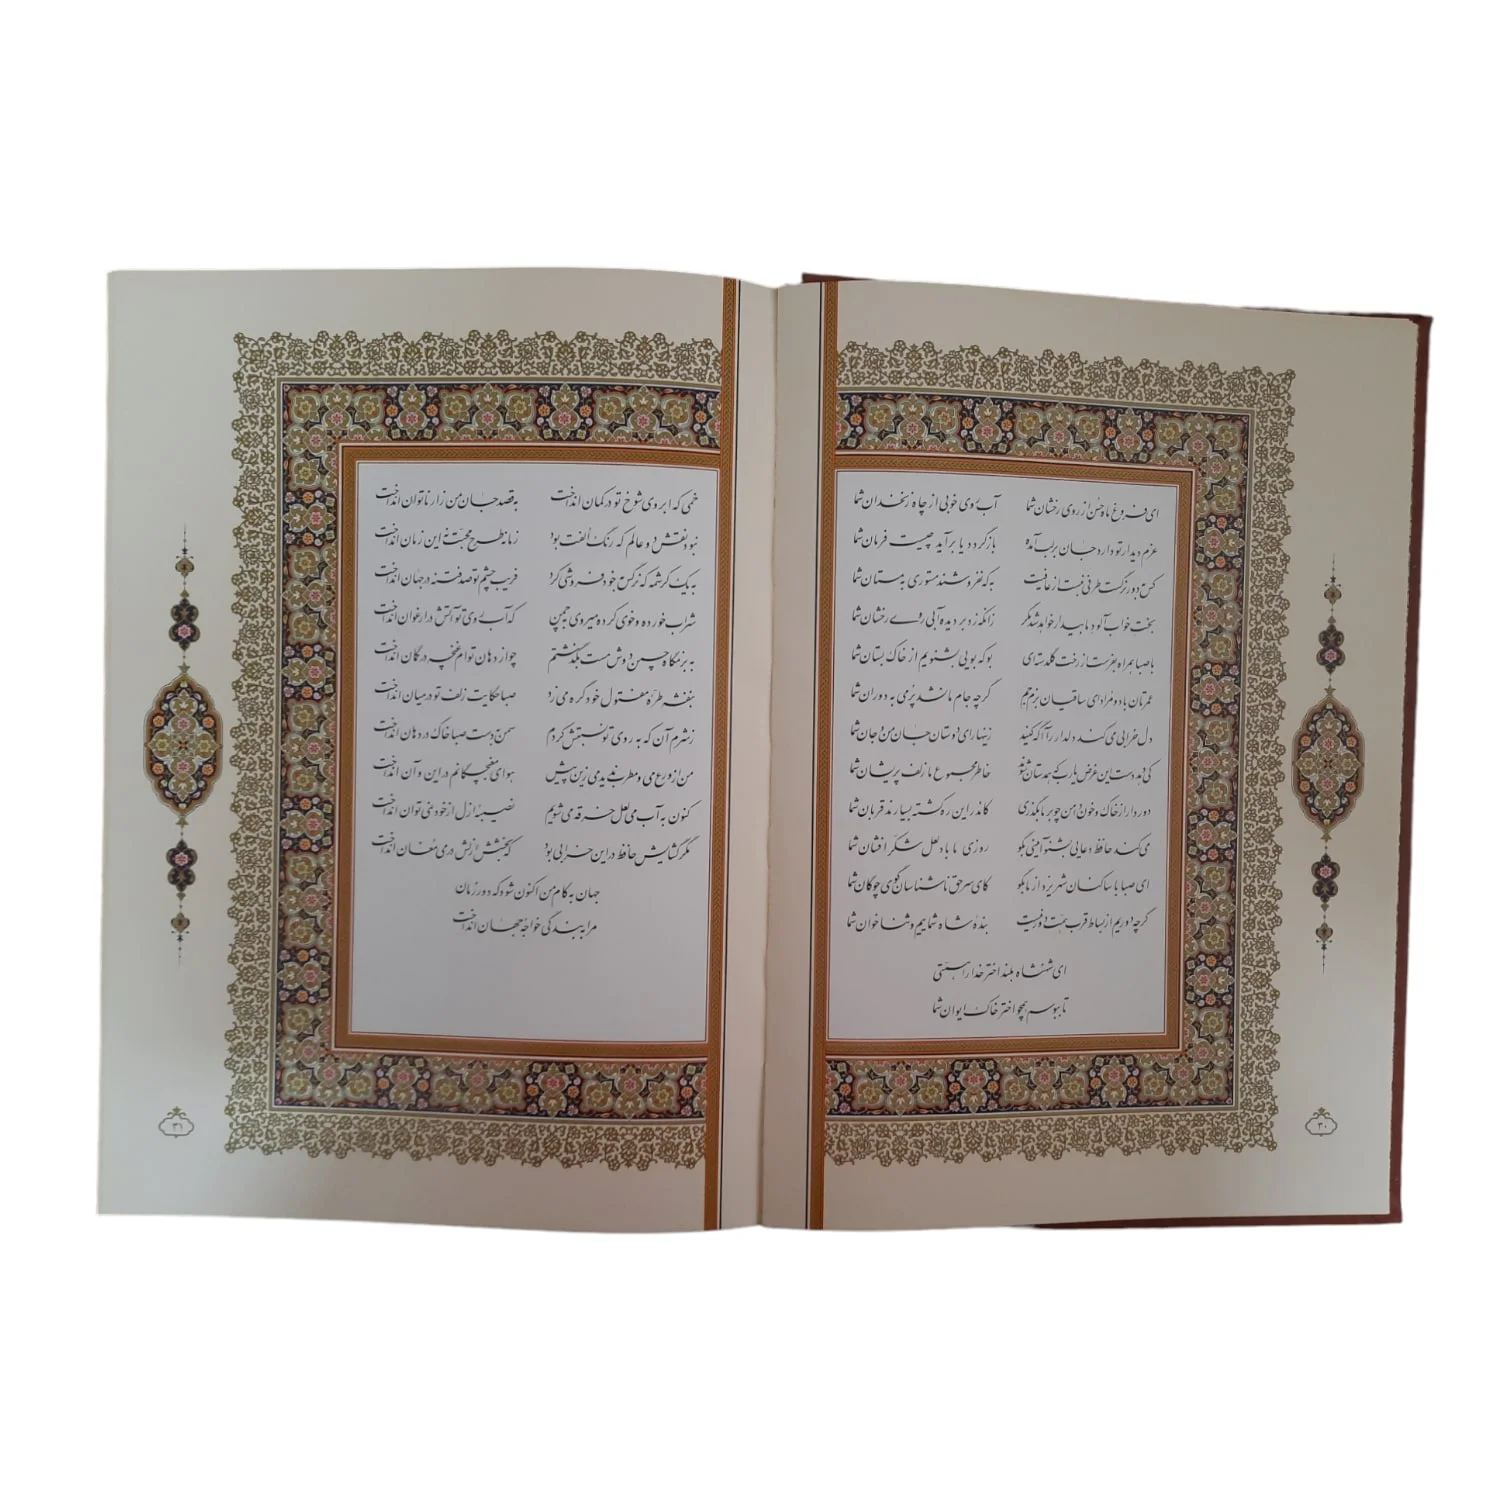 ای فروغ ماه حسن از روی رخشان شما آب روی خوبی از چاه زنخدان شما
عزم دیدار تو دارد جان بر لب آمده بازگردد یا برآید چیست فرمان شما
کس به دور نرگست طرفی نبست از عافیت به که نفروشند مستوری به مستان شما
بخت خواب آلود ما بیدار خواهد شد مگر زانکه زد بر دیده آبی روی رخشان شما
با صبا همراه بفرست از رخت گلدسته‌ای بو که بویی بشنویم از خاک بستان شما
عمرتان باد و مراد ای ساقیان بزم جم گرچه جام ما نشد پر می به دوران شما
دل خرابی می‌کند دلدار را آگه کنید زینهار ای دوستان جان من و جان شما
کی دهد دست این غرض یارب که همدستان شوند خاطر مجموع ما زلف پریشان شما
دور دار از خاک و خون دامن چو بر ما بگذری کاندر این ره کشته بسیارند قربان شما
می‌کند حافظ دعایی بشنو آمینی بگو روزی ما باد لعل شکرافشان شما
ای صبا با ساکنان شهر یزد از ما بگو کای سر حق ناشناسان گوی چوگان شما
گرچه دوریم از بساط قرب همت دور نیست بنده شاه شماییم و ثنا خوان شما
ای شهنشاه بلند اختر خدا را همتی
تا ببوسم همچو اختر خاک ایوان شما
۳۰
خمی که ابروی شوخ تو در کمان انداخت به قصد جان من زار ناتوان انداخت
نبود نقش دو عالم که رنگ الفت بود زمانه طرح محبت نه این زمان انداخت
به یک کرشمه که نرگس خود فروشی کرد فریب چشم تو صد فتنه در جهان انداخت
شراب خورده و خوی کرده میروی به چمن که آب روی تو آتش در ارغوان انداخت
به بزمگاه چمن دوش مست بگذشتم چو از دهان توام غنچه در گمان انداخت
بنفشه طره مفتول خود گره می زد صبا حکایت زلف تو در میان انداخت
ز شرم آن که به روی تو نسبتش کردم سمن به دست صبا خاک در دهان انداخت
من از ورع می و مطرب ندیدمی زین پیش هوای مغبچگانم در این و آن انداخت
کنون به آب می لعل خرقه می شویم نصیبه ازل از خود نمی توان انداخت
مگر گشایش حافظ در این خرابی بود که بخشش ازلش در می مغان انداخت
جهان به کام من اکنون شود که دور زمان
مرا به بندگی خواجه جهان انداخت
۳۱